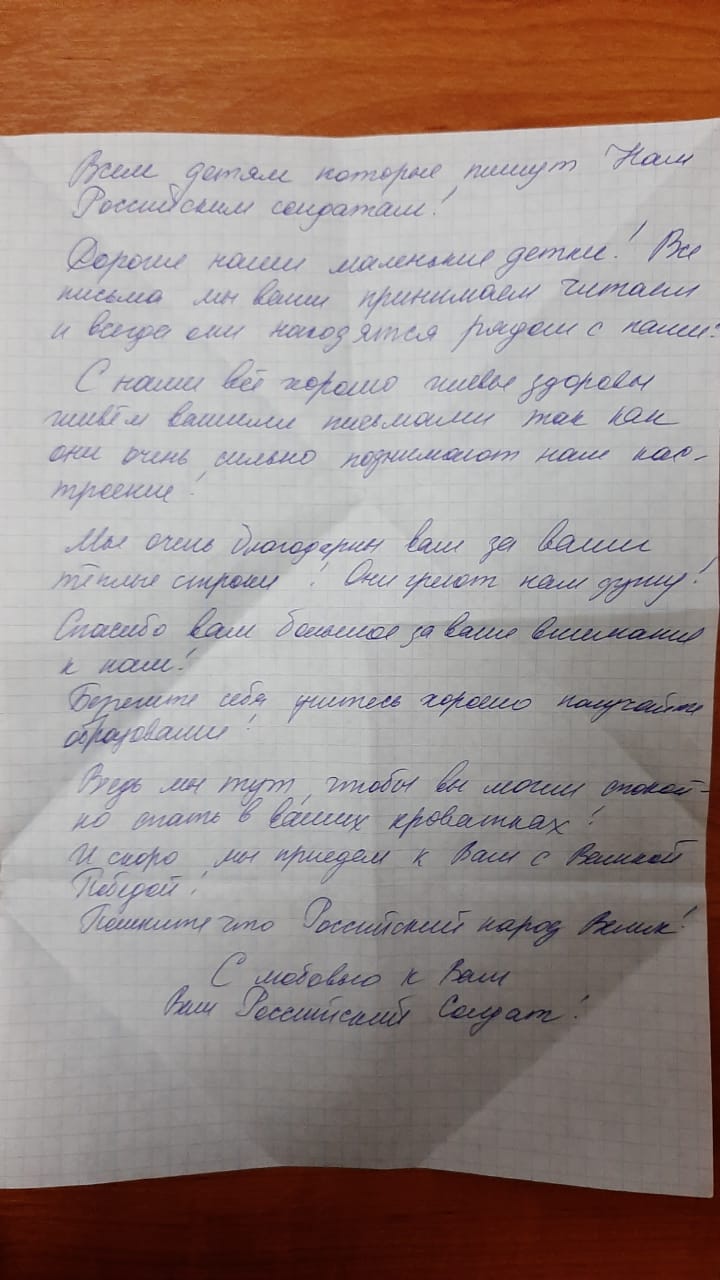 Всем детям которые пишут Нам
Российским солдатам!
Дорогие наши маленькие детки! Все
письма мы ваши принимаем читаем
и всегда они находятся рядом с нами!
С нами всё хорошо живы здоровы
живём вашими письмами так как
они очень сильно поднимают нам нас-
троение!
Мы очень благодарны вам за ваши
тёплые строки! Они греют нам душу!
Спасибо вам большое за ваше внимание
к нам!
Берегите себя учитесь хорошо получайте
образование!
Ведь мы тут, чтобы вы могли спокой-
но спать в ваших кроватках!
И скоро мы приедем к Вам с Великой
Победой!
Помните что Российский народ Велик!
С любовью к Вам
Ваш Российский Солдат!